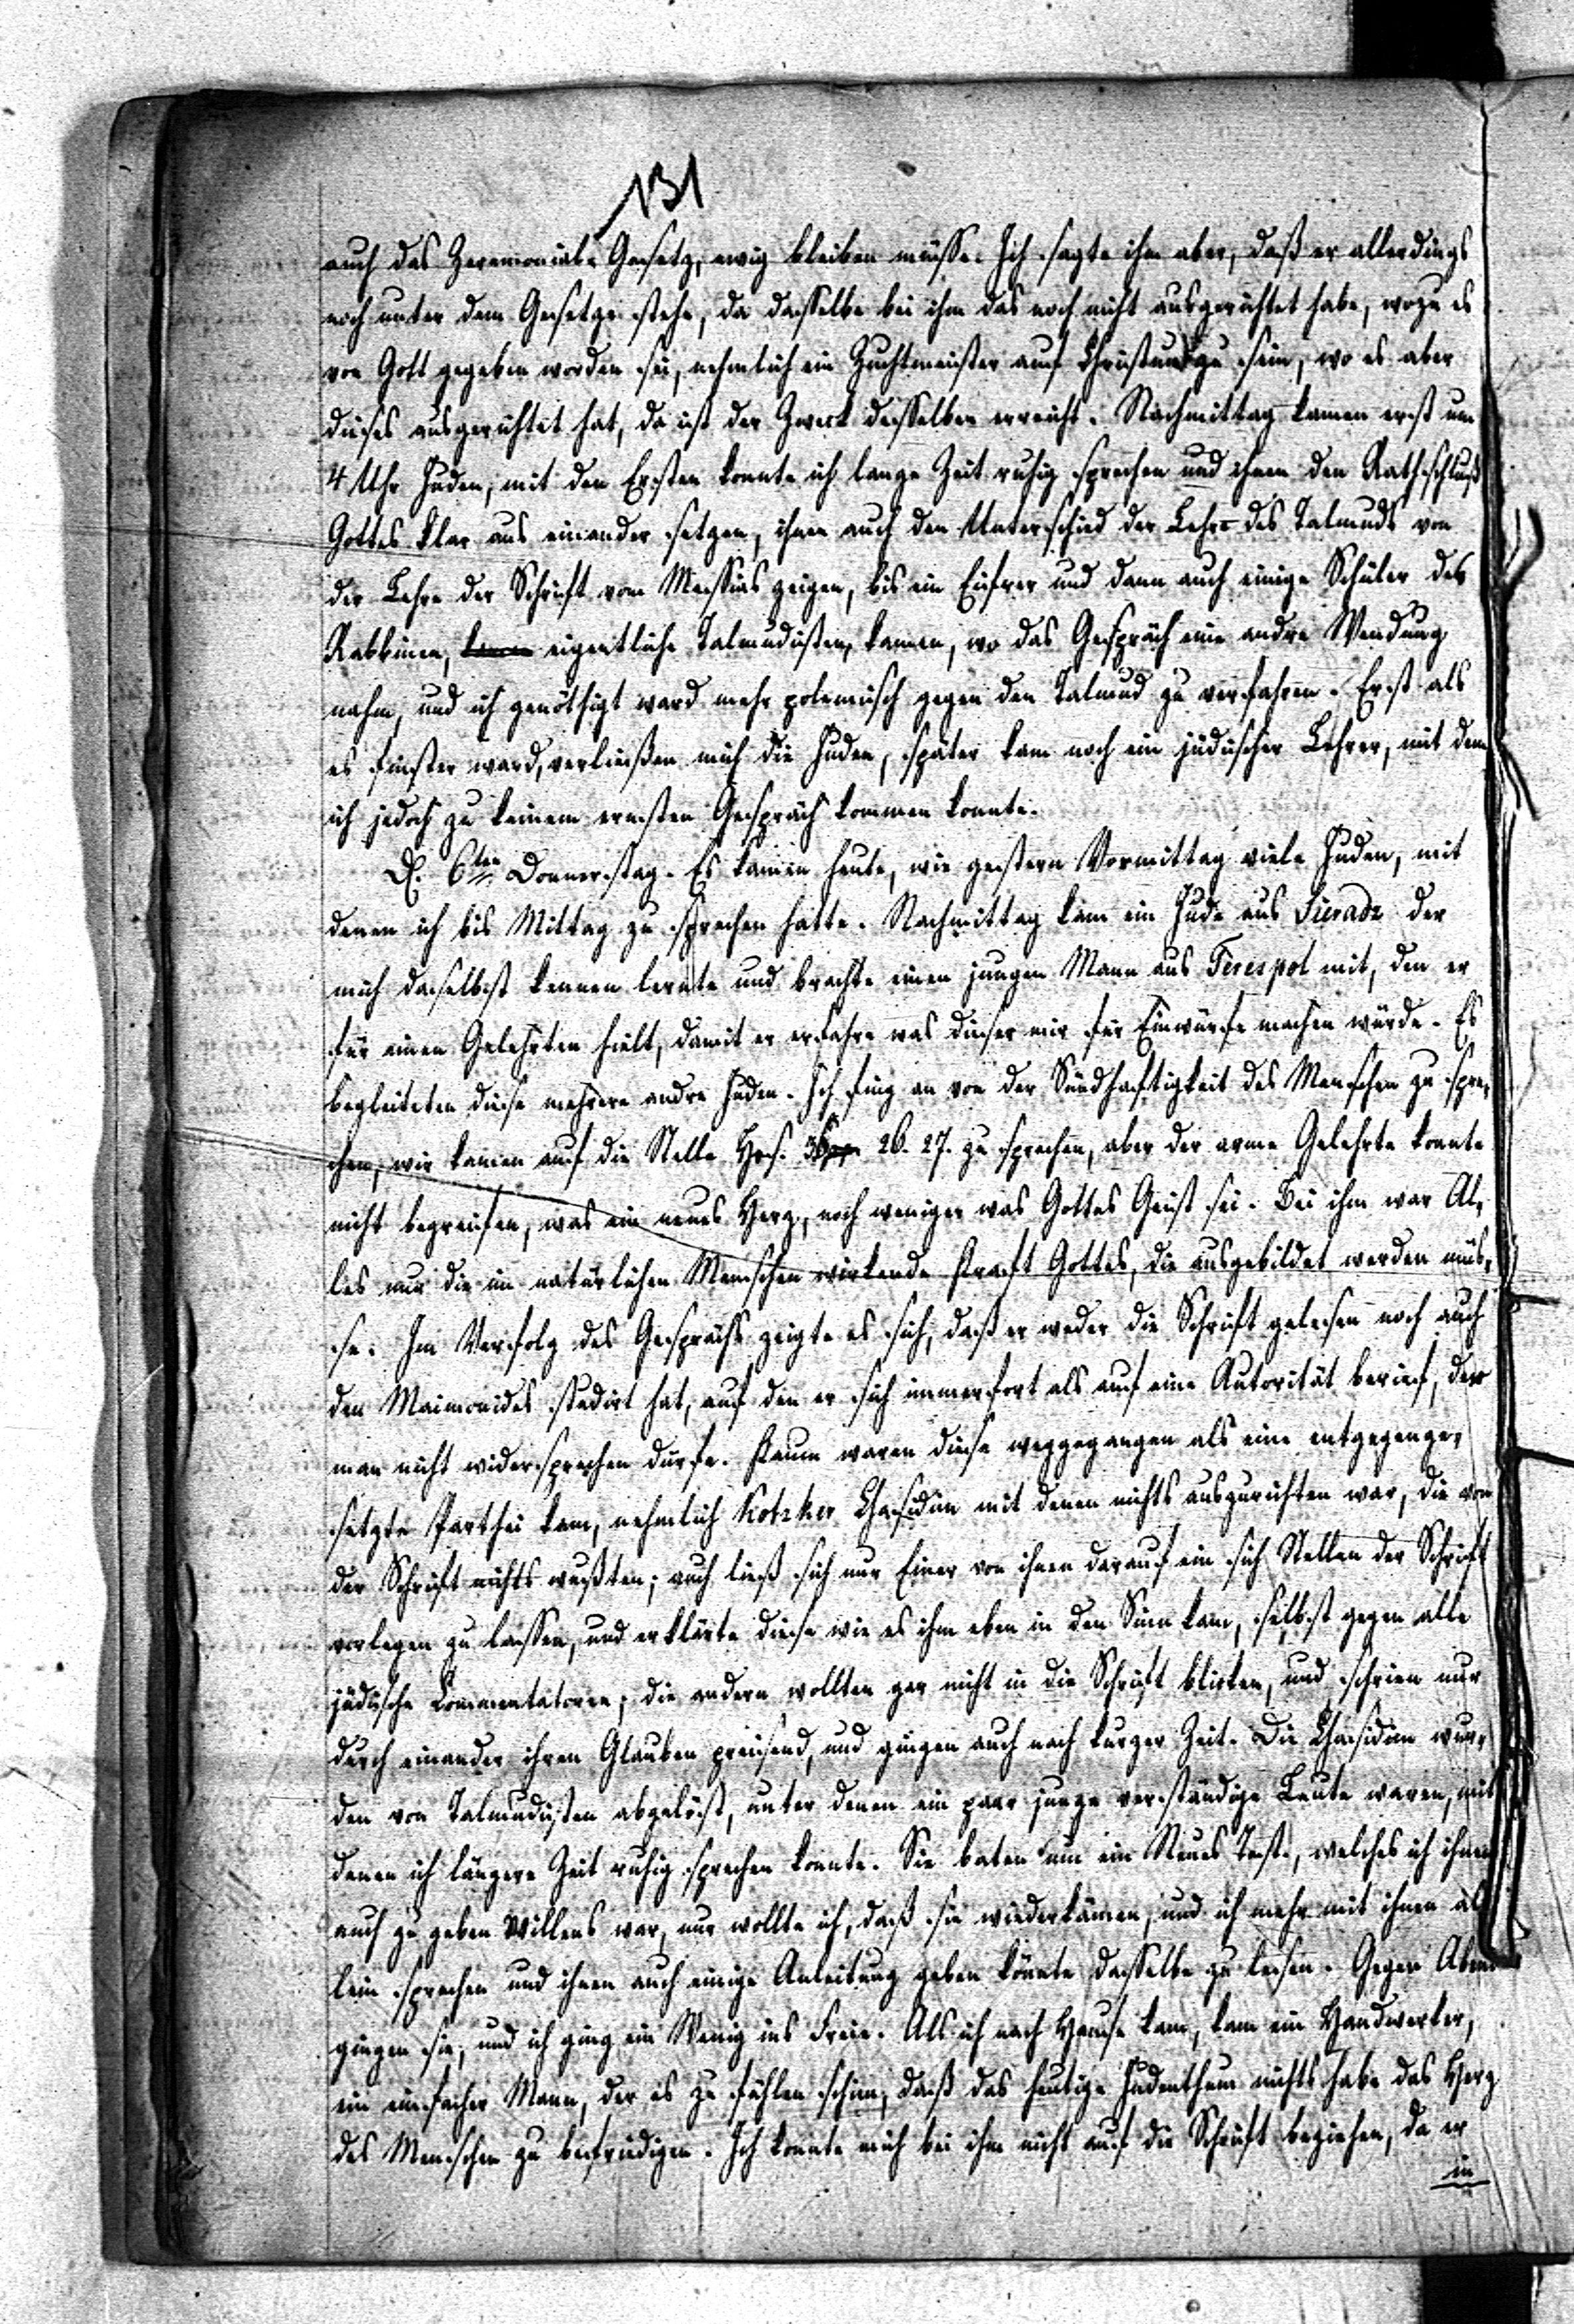 131
auch das Zeremonial-Gesetz, ewig bleiben müsse. Ich sagte ihm aber, daß er allerdings
noch unter dem Gesetze stehe, da dasselbe bei ihm das noch nicht ausgerichtet habe, wozu es
von Gott gegeben worden sei, nehmlich ein Zuchtmeister auf Christum zu sein, wo es aber
dieses ausgerichtet hat, da ist der Zweck desselben erreicht. Nachmittag kamen erst um
4 Uhr Juden, mit den Ersten konnte ich lange Zeit ruhig sprechen und ihnen den Rathschluß
Gottes klar aus einander setzen, ihnen auch den Unterschied der Lehre des Talmuds von
der Lehre der Schrift vom Messias zeigen, bis ein Eifrer und dann auch einige Schüler des
Rabbinen, eigentliche Talmudisten, kamen, wo das Gespräch eine andre Wendung
nahm, und ich genöthigt ward mehr polemisch gegen den Talmud zu verfahren. Erst als
es finster ward, verließen mich die Juden, später kam noch ein jüdischer Lehrer, mit dem
ich jedoch zu keinem ernsten Gespräch kommen konnte.
D. 6ten Donnerstag. Es kamen heute, wie gestern Vormittag viele Juden, mit
denen ich bis Mittag zu sprechen hatte. Nachmittag kam ein Jude aus Sieradz der
mich daselbst kennen lernte und brachte einen jungen Mann aus Terespol mit, den er
für einen Gelehrten hielt, damit er erfahre was dieser mir für Einwürfe machen würde. Es
begleiteten diese mehrere andre Juden. Ich fing an von der Sündhaftigkeit des Menschen zu spre-
chen, wir kamen auf die Stelle Hes. 36 26. 27. zu sprechen, aber der arme Gelehrte konnte
nicht begreifen, was ein neues Herz, noch weniger was Gottes Geist sei. Bei ihm war Al-
les nur die im natürlichen Menschen wirkende Kraft Gottes, die ausgebildet werden müs-
se. Im Verfolg des Gesprächs zeigte es sich, daß er weder die Schrift gelesen noch auch
den Maimonides studirt hat, auf den er sich immerfort als auf eine Autorität berief, der
man nicht widersprechen dürfe. Kaum waren diese weggegangen als eine entgegenge-
setzte Parthei kam, nehmlich Kotzker Chasidim mit denen nichts auszurichten war, die von
der Schrift nichts wußten; auch ließ sich nur Einer von ihnen darauf ein sich Stellen der Schrift
vorlegen zu lassen, und erklärte diese wie es ihm eben in den Sinn kam, selbst gegen alle
jüdische Commentatoren; die andern wollten gar nicht in die Schrift blicken, und schrien nur
durch einander ihren Glauben preisend, und gingen auch nach kurzer Zeit. Die Chasidim wur-
den von Talmudisten abgelöst, unter denen ein paar junge verständige Leute waren, mit
denen ich längere Zeit ruhig sprechen konnte. Sie baten um ein Neues Test., welches ich ihnen
auch zu geben Willens war, nur wollte ich, daß sie wiederkämen, und ich mehr mit ihnen al-
lein sprechen und ihnen auch einige Anleitung geben könnte dasselbe zu lesen. Gegen Abend
gingen sie, und ich ging ein Wenig ins Freie. Als ich nach Hause kam, kam ein Handwerker,
ein einfacher Mann, der es zu fühlen schien, daß das heutige Judenthum nichts habe das Herz
des Menschen zu befriedigen. Ich konnte mich bei ihm nicht auf die Schrift beziehen, da er
in